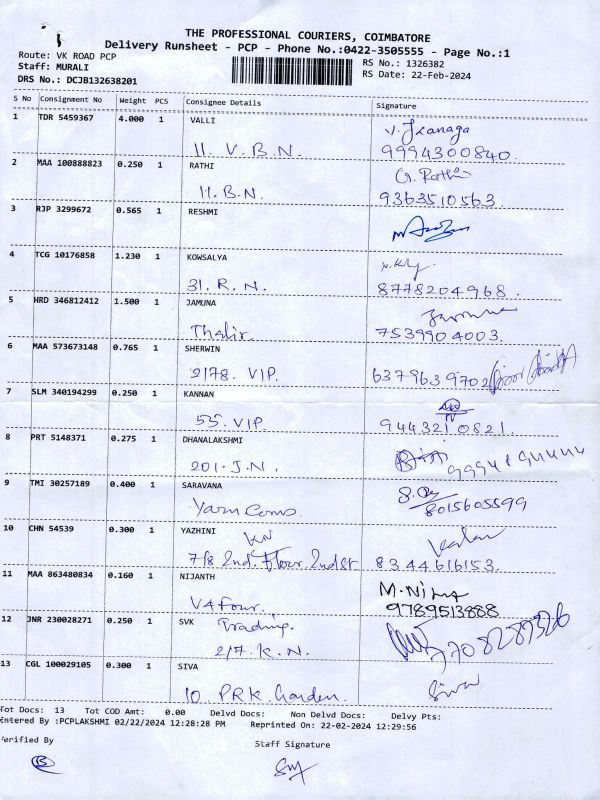 THE PROFESSIONAL COURIERS, COIMBATORE
Delivery Runsheet - PCP - Phone No.:0422-3505555 - Page No.:1
Route: VK ROAD PCP
Staff: MURALI
DRS No.: DCJB132638201
RS No.: 1326382
RS Date: 22-Feb-2024
S No Consignment No Weight PCS Consignee Details Signature
1 TDR 5459367 4.000 1 VALLI
11. V.B.N. 9994300840.
2 MAA 100888823 0.250 1 RATHI G. Rathi
11. B.N. 9363510563
3 RJP 3299672 0.565 1 RESHMI
4 TCG 10176858 1.230 1 KOWSALYA
31. R.N. 8778204968.
5 HRD 346812412 1.500 1 JAMUNA
Thalir. 7539904003.
6 MAA 573673148 0.765 1 SHERWIN
2/78. VIP. 6379639702
7 SLM 340194299 0.250 1 KANNAN
55. VIP 9443210821.
8 PRT 5148371 0.275 1 DHANALAKSHMI
201. J.N.
9 TMI 30257189 0.400 1 SARAVANA
Yarn Coms. 8015605599
10 CHN 54539 0.300 1 YAZHINI
KN
7/8 2nd. Floor. 2nd St 8344616153.
11 MAA 863480834 0.160 1 NIJANTH
V4 Four. 9789513888
12 JNR 230028271 0.250 1 SVK Trading.
2/7. K.N. 7708289326
13 CGL 100029105 0.300 1 SIVA
10 PRK Garden. Siva
Tot Docs: 13 Tot COD Amt: 0.00 Delvd Docs: Non Delvd Docs: Delvy Pts:
Entered By :PCPLAKSHMI 02/22/2024 12:28:28 PM Reprinted On: 22-02-2024 12:29:56
Verified By
Staff Signature